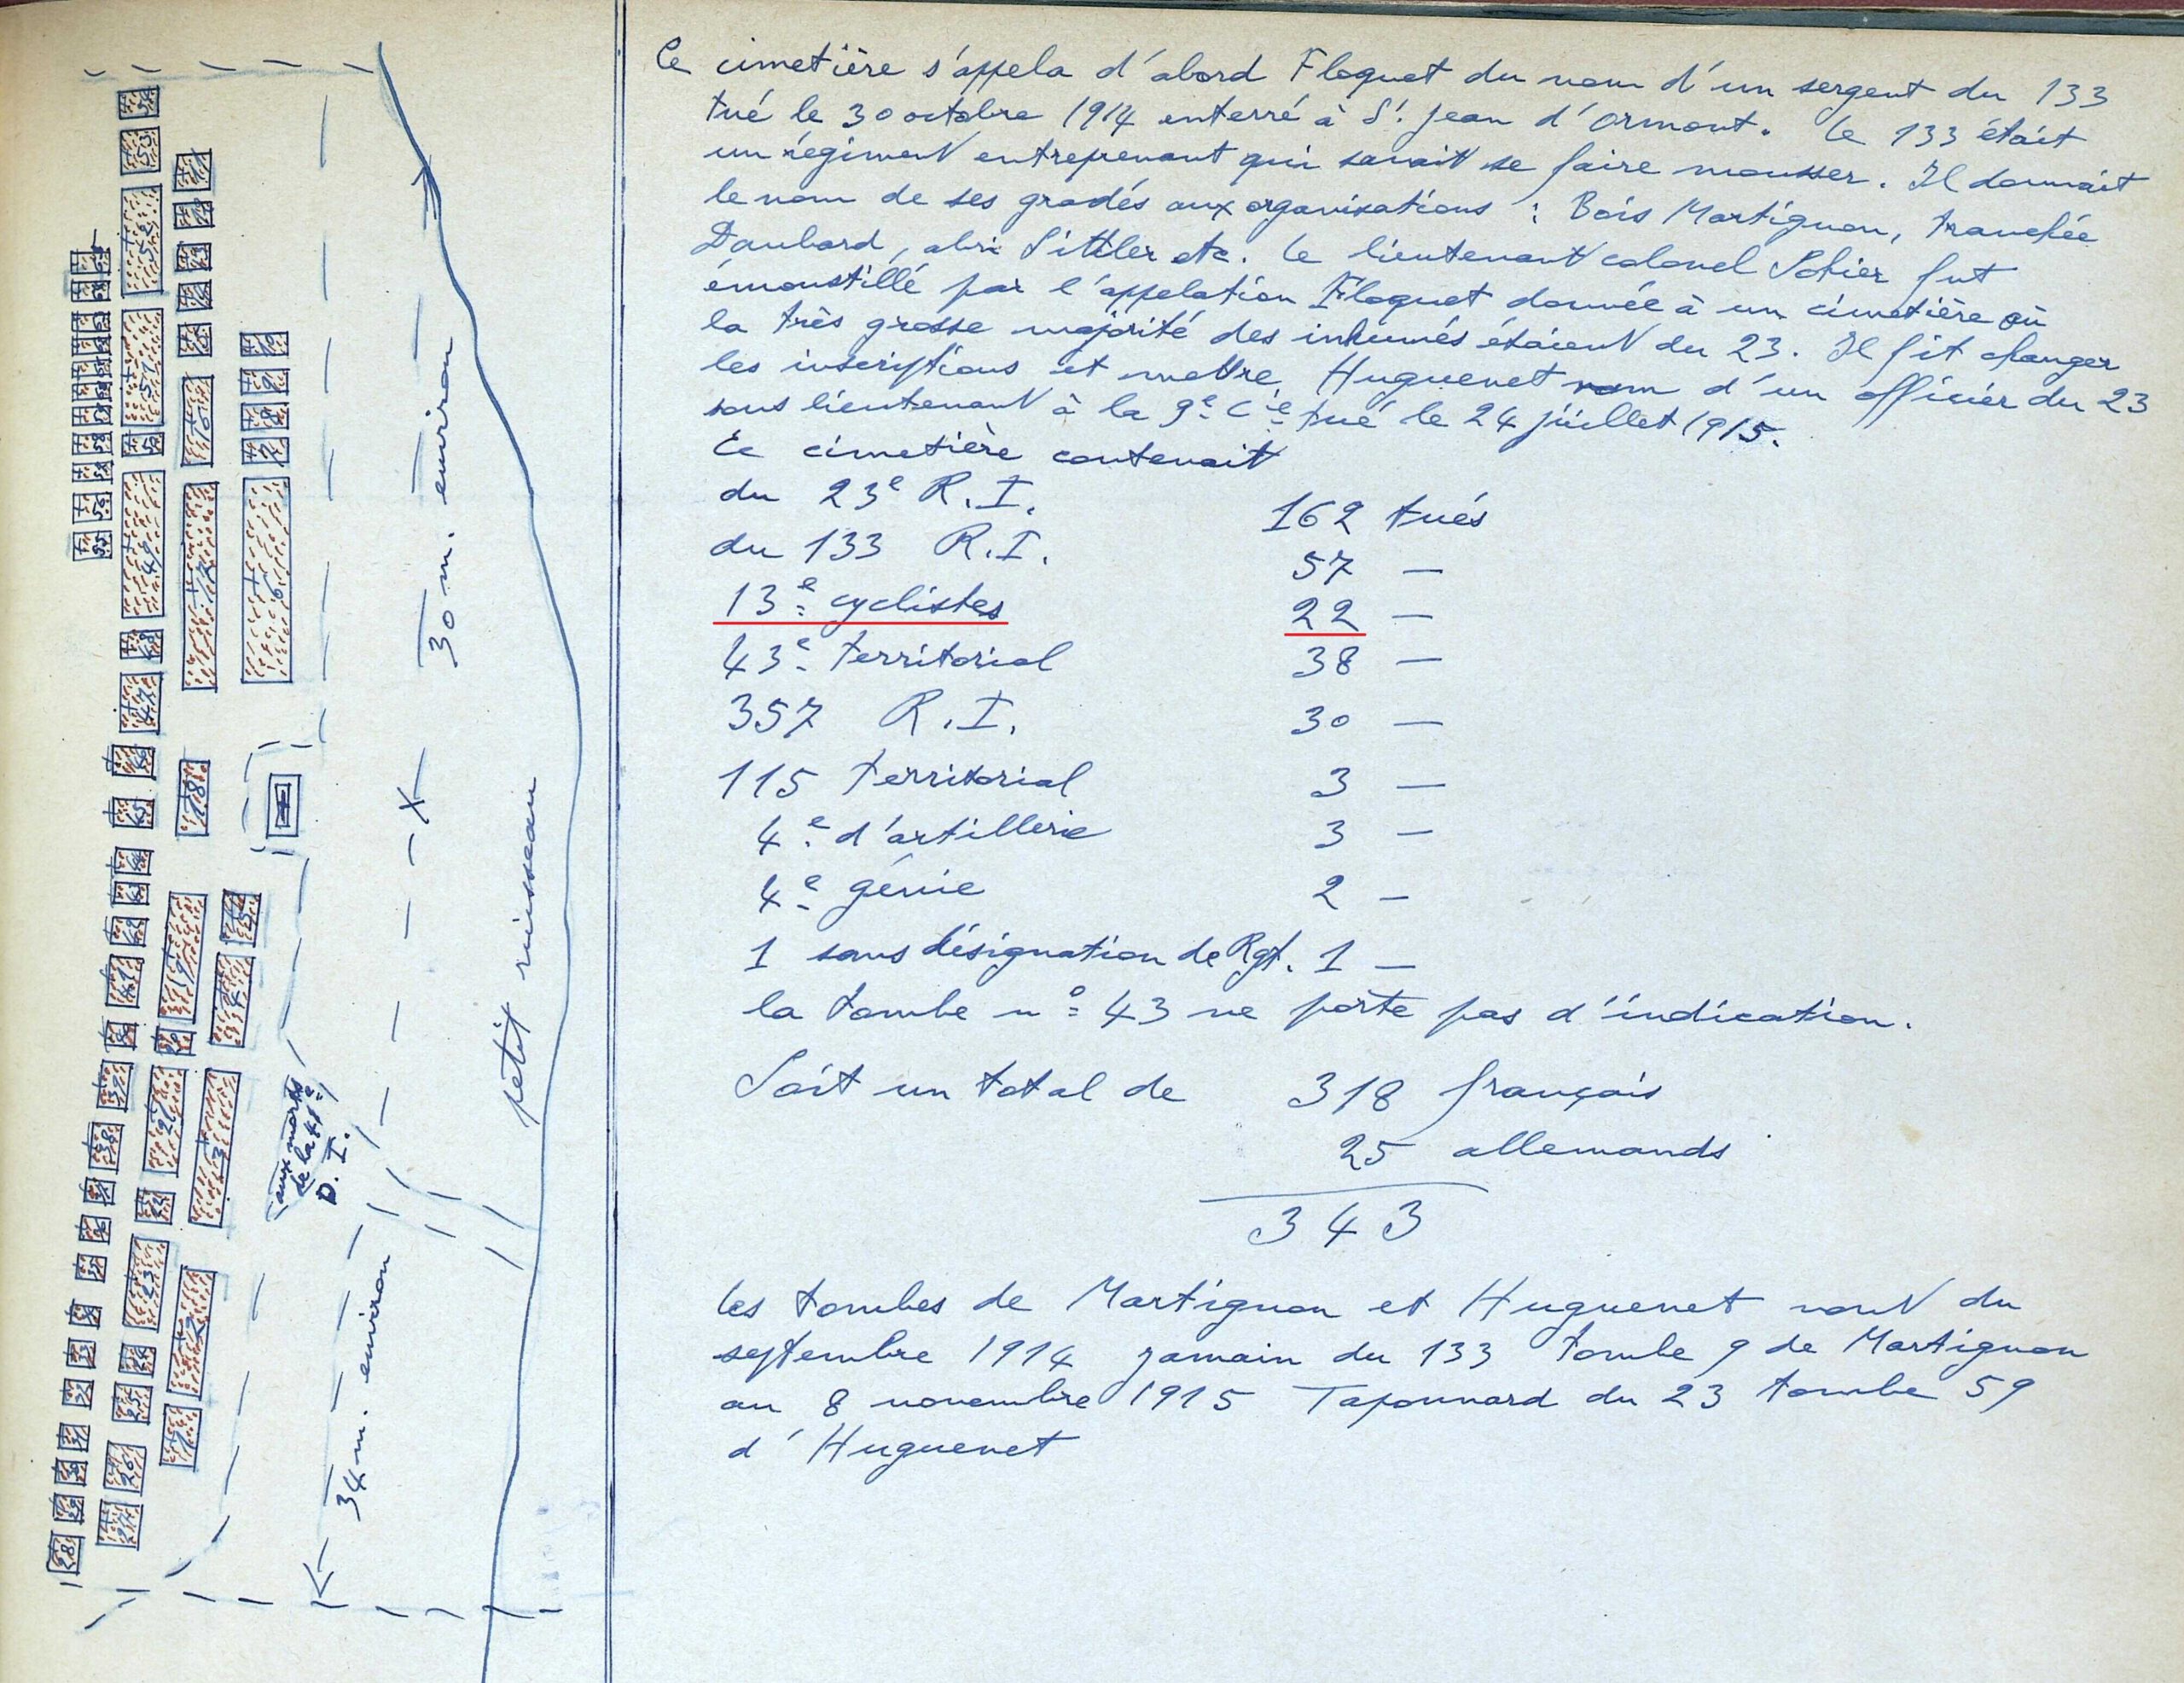 Ce cimetière s'appela d'abord Floquet du nom d'un sergent du 133
tué le 30 octobre 1914 enterré à St Jean d'Ormont. Le 133 était
un régiment entreprenant qui savait se faire mousser. Il donnait
le nom de ses gradés aux organisations : Bois Martignon, tranchée
Daubard, abri Sittler etc. Le lieutenant colonel Sohier fut
émoustillé par l'appelation Floquet donnée à un cimetière où
la très grosse majorité des inhumés étaient du 23. Il fit changer
les inscriptions et mettre Huguenet nom d'un officier du 23
sous lieutenant à la 9e Cie tué le 24 juillet 1915.
Ce cimetière contenait
du 23e R.I. 162 tués
du 133 R.I. 57 —
13e cyclistes 22 —
43e territorial 38 —
357 R.I. 30 —
115 territorial 3 —
4e d'artillerie 3 —
4e génie 2 —
1 sans désignation de Rgt. 1 —
la tombe n° 43 ne porte pas d'indication.
Soit un total de 318 français
25 allemands
343
les tombes de Martignon et Huguenet vont du
septembre 1914 Jamain du 133 tombe 9 de Martignon
au 8 novembre 1915 Taponnard du 23 tombe 59
d'Huguenet
30 m. environ
petit ruisseau
aux morts
de la 41e
D.I.
34 m. environ